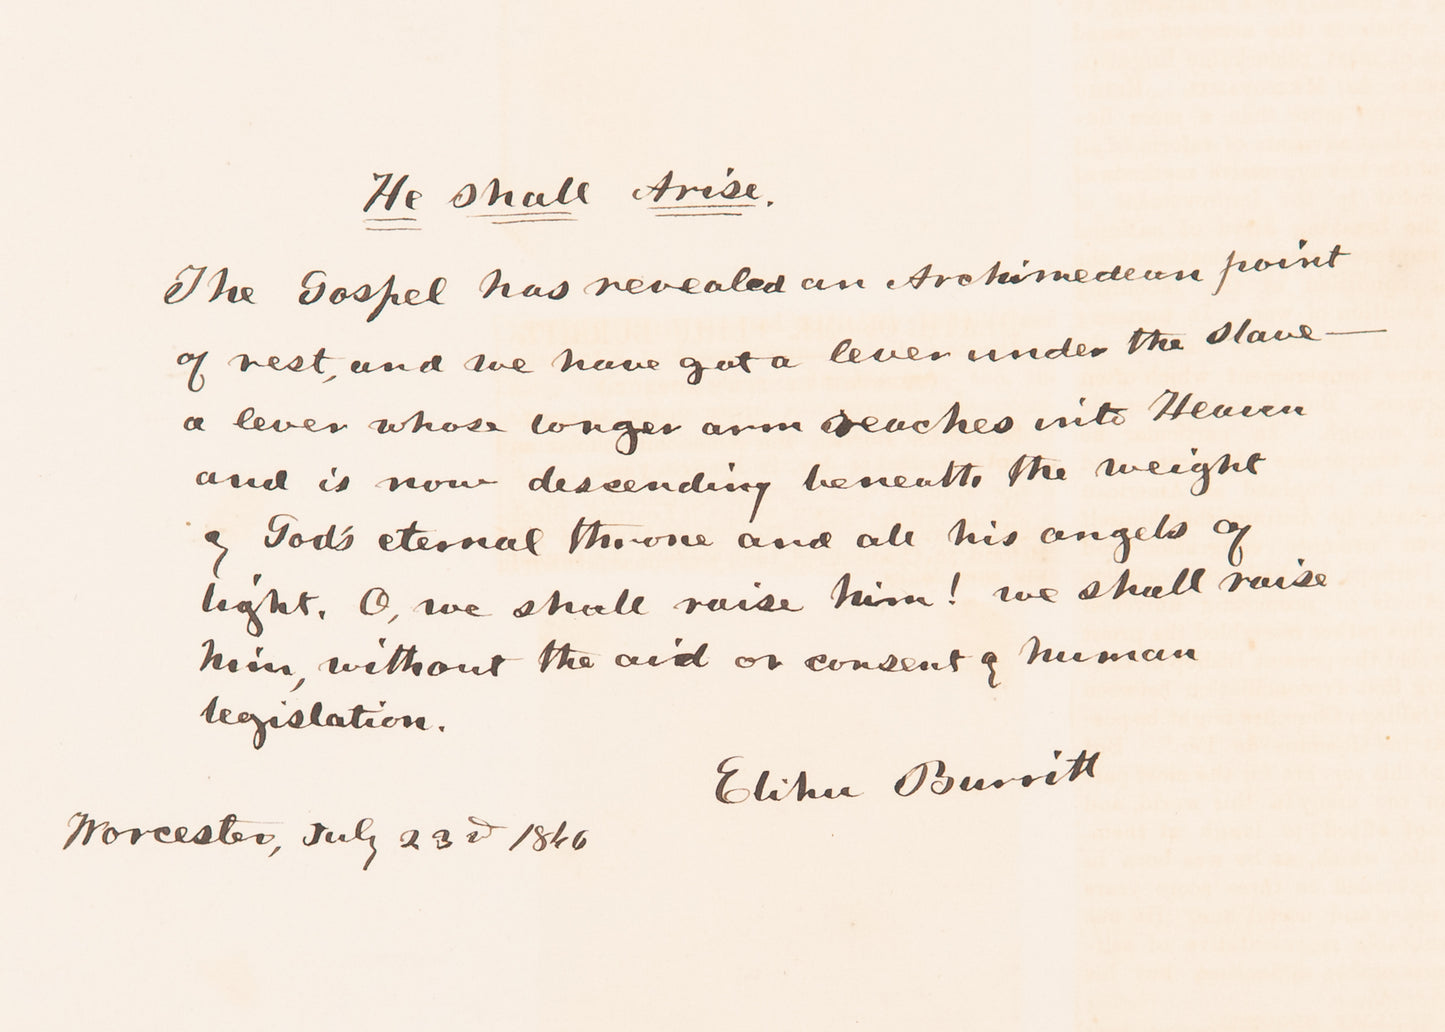 He shall Arise.
The Gospel has revealed an Archimedean point
of rest, and we have got a lever under the slave—
a lever whose longer arm reaches into Heaven
and is now descending beneath the weight
of God's eternal throne and all his angels of
light. O, we shall raise him! we shall raise
him, without the aid or consent of human
legislation.
Elihu Burritt
Worcester, July 23d 1846